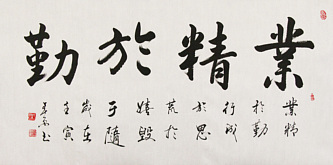 業精於勤
業精
於勤
行成
於思
荒於
嬉毀
于隨
歲在
壬寅